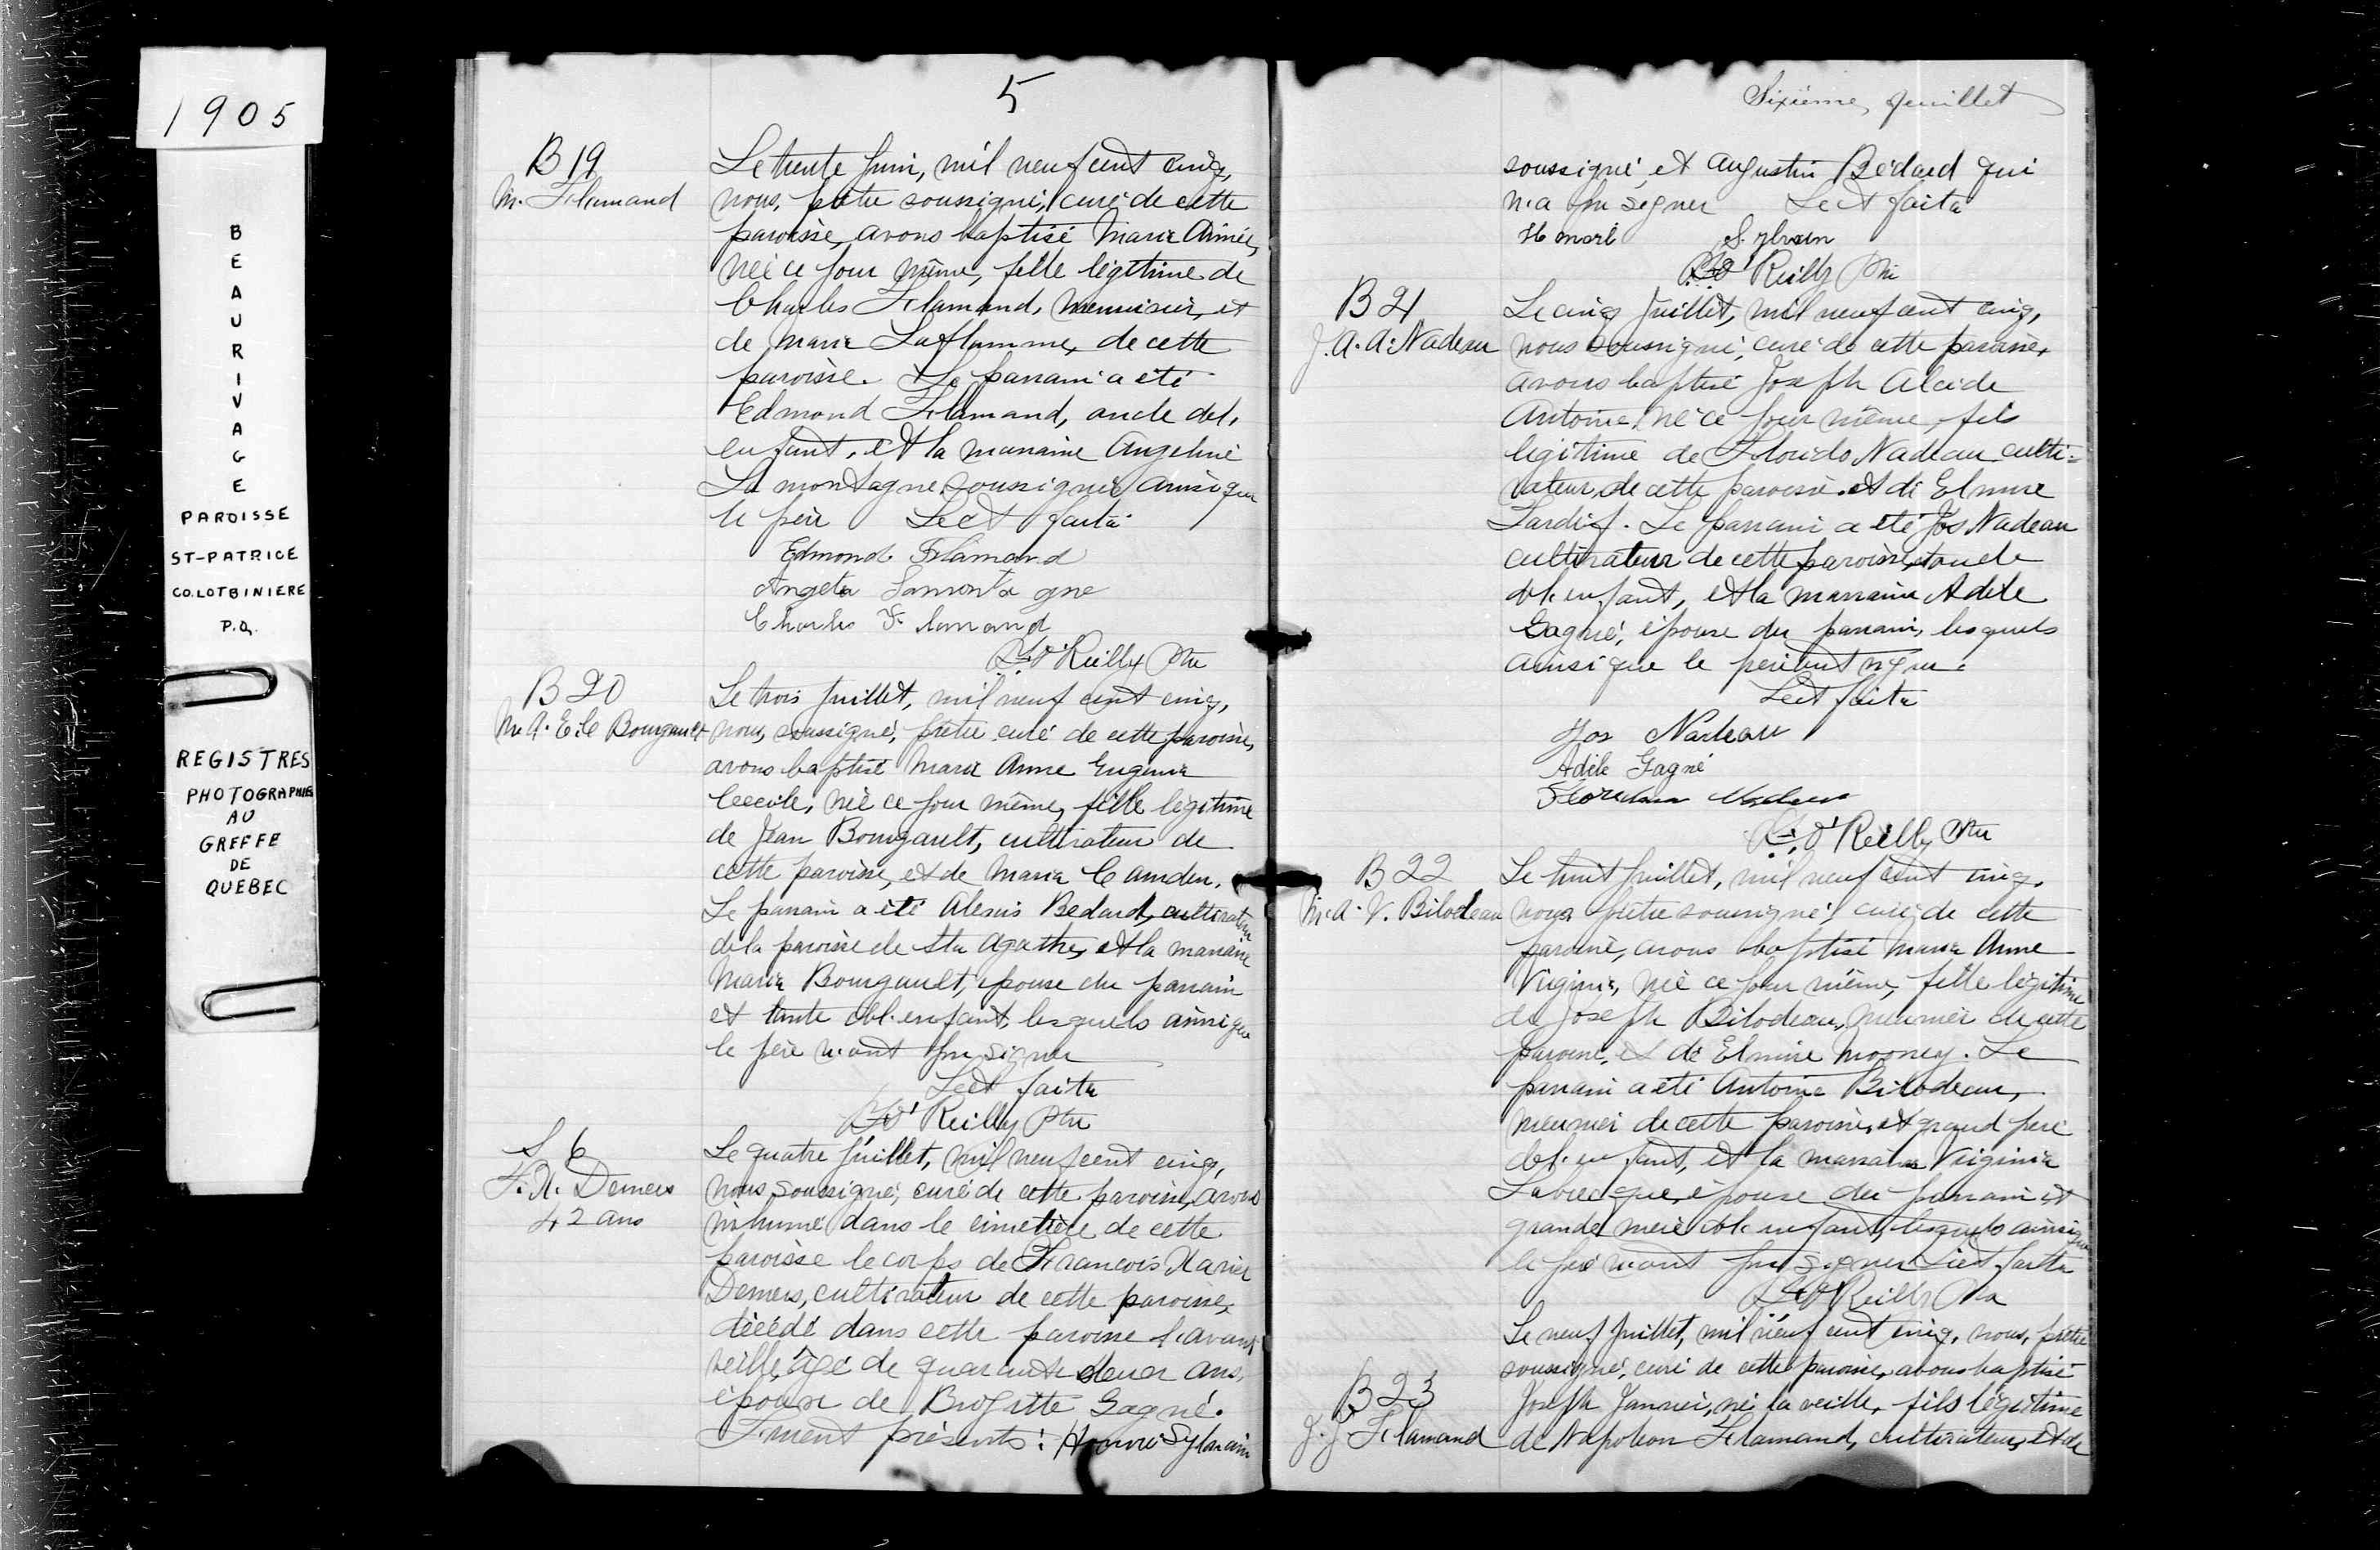 1905
BEAURIVAGE
PAROISSE
ST-PATRICE
CO. LOTBINIERE
P.Q.
REGISTRES
PHOTOGRAPHIES
AU
GREFFE
DE
QUEBEC
5
B 19
M. Flamand
Le trente Juin, mil neuf cent cinq,
nous, prêtre soussigné, curé de cette
paroisse, avons baptisé Marie Aimée,
née ce jour même, fille légitime de
Charles Flamand, menuisier, et
de Marie Laflamme, de cette
paroisse. Le parrain a été
Edmond Flamand, oncle de l'
enfant, et la marraine Angeline
Lamontagne soussignés ainsi que
le père Lect. faite
Edmond Flamand
Angela Lamontagne
Charles Flamand
O'Reilly Ptre
B 20
M. A. E. C. Bourgault
Le trois Juillet, mil neuf cent cinq,
nous, soussigné, prêtre curé de cette paroisse,
avons baptisé Marie Anne Eugenie
Cecile, née ce jour même, fille légitime
de Jean Bourgault, cultivateur de
cette paroisse, et de Maria Camden.
Le parrain a été Alexis Bedard, cultivateur
de la paroisse de Ste Agathe, et la marraine
Marie Bourgault, épouse du parrain
et tante de l'enfant, lesquels ainsi que
le père n'ont pu signer
Lect. faite
O'Reilly Ptre
S 6
F. X. Demers
42 ans
Le quatre Juillet, mil neuf cent cinq,
nous soussigné, curé de cette paroisse, avons
inhumé dans le cimetière de cette
paroisse le corps de Francois Xavier
Demers, cultivateur de cette paroisse,
décédé dans cette paroisse l'avant
veille, âgé de quarante deux ans,
époux de Brigitte Gagné.
Furent présents: Honoré Sylvain
Sixième feuillet
soussigné, et Augustin Bédard qui
n'a pu signer Lect faite
Honoré Sylvain
O'Reilly Ptre
B 21
J. A. A. Nadeau
Le cinq Juillet, mil neuf cent cinq,
nous soussigné, curé de cette paroisse,
avons baptisé Joseph Alcide
Antoine, né ce jour même, fils
légitime de Florido Nadeau culti-
vateur, de cette paroisse et de Elmire
Tardif. Le parrain a été Jos Nadeau
cultivateur de cette paroisse, oncle
de l'enfant, et la marraine Adèle
Gagné, épouse du parrain, lesquels
ainsi que le père ont signé.
Lect faite
Jos Nadeau
Adèle Gagné
Nadeau
O'Reilly Ptre
B 22
M. A. V. Bilodeau
Le huit Juillet, mil neuf cent cinq,
nous prêtre soussigné, curé de cette
paroisse, avons baptisé Marie Anne
Virginie, née ce jour même, fille légitime
de Joseph Bilodeau, meunier de cette
paroisse, et de Elmire Mooney. Le
parrain a été Antoine Bilodeau,
meunier de cette paroisse, et grand père
de l'enfant, et la marraine Virginie
Labrecque, épouse du parrain et
grande mère de l'enfant, lesquels ainsi que
le père n'ont pu signer Lect. faite
O'Reilly Ptre
B 23
J. J. Flamand
Le neuf Juillet, mil neuf cent cinq, nous, prêtre
soussigné, curé de cette paroisse, avons baptisé
Joseph, né la veille, fils légitime
de Napoleon Flamand, cultivateur, et de